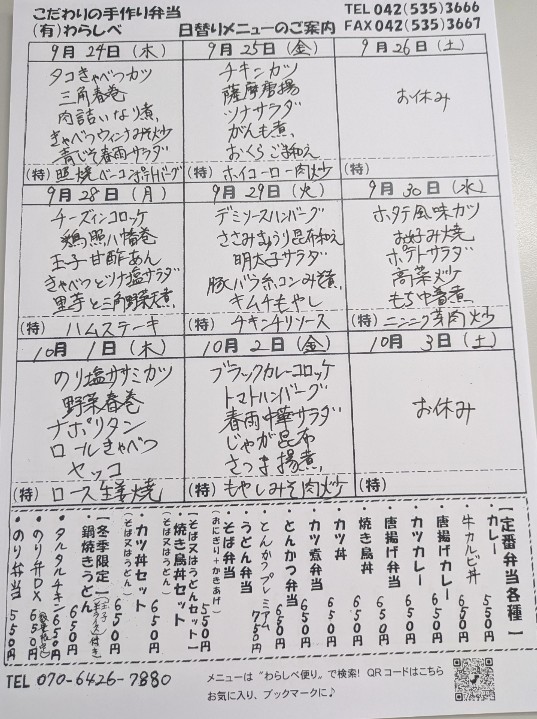 こだわりの手作り弁当
(有)わらしべ
日替りメニューのご案内
TEL 042(535)3667
FAX 042(535)3666
9月24日(木)
タコきゃべつカツ
三角春巻
肉詰いなり煮
きゃべつウィンナみそ炒
青じそ春雨サラダ
(特)照焼ベーコンポテトバーグ
9月25日(金)
チキンカツ
薩摩唐揚
ツナサラダ
がんも煮
おくらごま和え
(特)ホイコーロー肉炒
9月26日(土)
お休み
9月28日(月)
チーズインコロッケ
鶏照八幡巻
玉子甘酢あん
きゃべつとツナ塩サラダ
里芋と三角野菜天煮
(特)ハムステーキ
9月29日(火)
デミソースハンバーグ
ささみきゅうり昆布和え
明太子サラダ
豚バラ糸コンみそ煮
キムチもやし
(特)チキンチリソース
9月30日(水)
ホタテ風味カツ
お好み焼
ポテトサラダ
高菜炒
もち巾着煮
(特)ニンニク芽肉炒
10月1日(木)
のり塩ササミカツ
野菜春巻
ナポリタン
ロールきゃべつ
ヤッコ
(特)ロース生姜焼
10月2日(金)
ブラックカレーコロッケ
トマトハンバーグ
春雨中華サラダ
じゃが昆布
さつま揚煮
(特)もやしみそ肉炒
10月3日(土)
お休み
(特)
【定番弁当各種】
・カレー 550円
・牛カルビ丼 650円
・唐揚げカレー 650円
・カツカレー 650円
・唐揚げ弁当 650円
・焼き鳥丼 650円
・カツ丼 650円
・カツ煮弁当 650円
・とんかつ弁当 650円
・とんかつプレミアム 750円
・うどん弁当
・そば弁当 550円
(おにぎり+かきあげ)
【そば又はうどんセット】
・焼き鳥丼セット 650円
(そば又はうどん)
・カツ丼セット 650円
(そば又はうどん)
【冬季限定】
鍋焼きうどん 650円
・タルタルチキン 650円
・のり弁DX 650円
・のり弁当 550円
TEL 070-6426-7880
メニューは"わらしべ便り"で検索! QRコードはこちら
お気に入り、ブックマークに♪